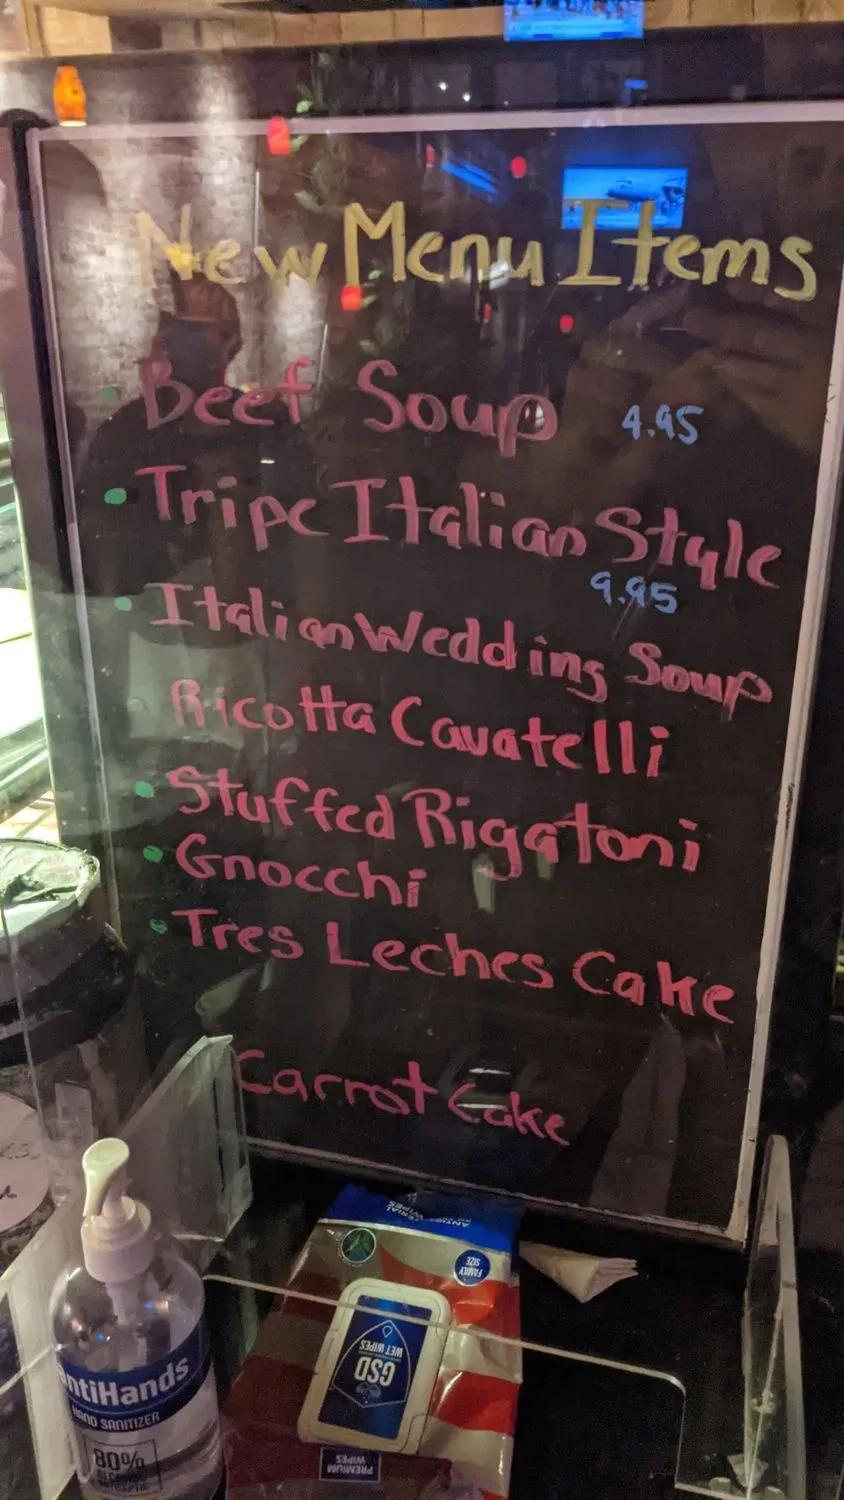 New Menu Items
Beef Soup 4.95
Tripe Italian Style
9.95
Italian Wedding Soup
Ricotta Cavatelli
Stuffed Rigatoni
Gnocchi
Tres Leches Cake
Carrot Cake
FAMILY
SIZE
GSD
WET WIPES
PREMIUM
WIPES
antiHands
HAND SANITIZER
80%